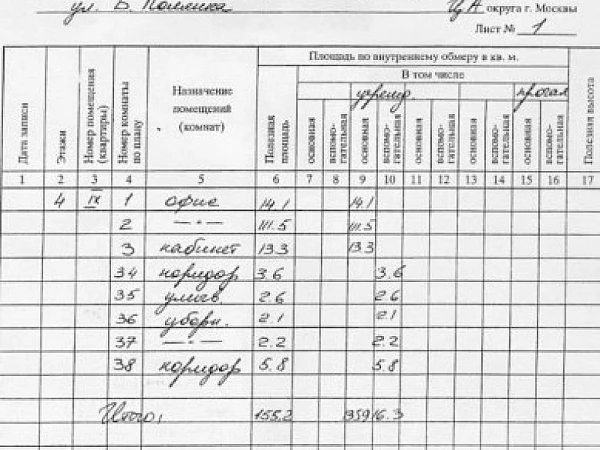 ул. Б. Полянка ЦА округа г. Москвы
Лист № 1
Площадь по внутреннему обмеру в кв. м.
В том числе
учрежд. прочая
Дата записи Этажи Номер помещения (квартиры) Номер комнаты по плану Назначение помещений (комнат) Полезная площадь основная вспомо-гательная основная вспомо-гательная основная вспомо-гательная основная вспомо-гательная основная вспомо-гательная Полезная высота
1 2 3 4 5 6 7 8 9 10 11 12 13 14 15 16 17
4 IX 1 офис 14.1 14.1
2 — " — 111.5 111.5
3 кабинет 13.3 13.3
34 коридор 3.6 3.6
35 умыв. 2.6 2.6
36 уборн. 2.1 2.1
37 — " — 2.2 2.2
38 коридор 5.8 5.8
Итого: 155.2 16.3